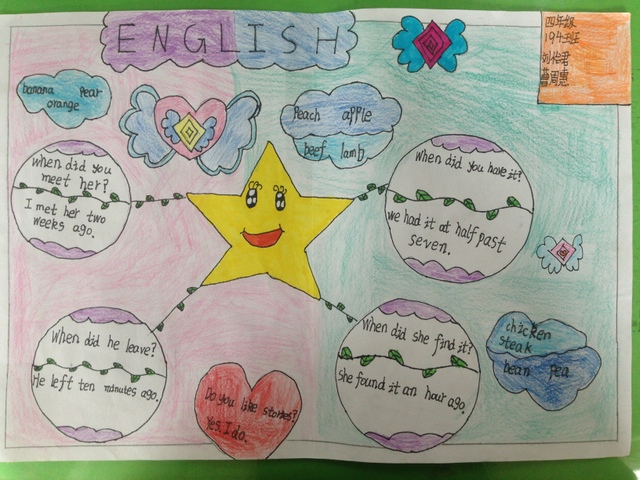 ENGLISH
四年级
194班
刘怡君
曹周惠
banana pear
orange
Peach apple
beef lamb
When did you
meet her?
I met her two
weeks ago.
When did you have it?
we had it at half past
seven.
When did he leave?
He left ten minutes ago.
When did she find it?
she found it an hour ago.
chicken
steak
bean pea
Do you like stories?
Yes, I do.